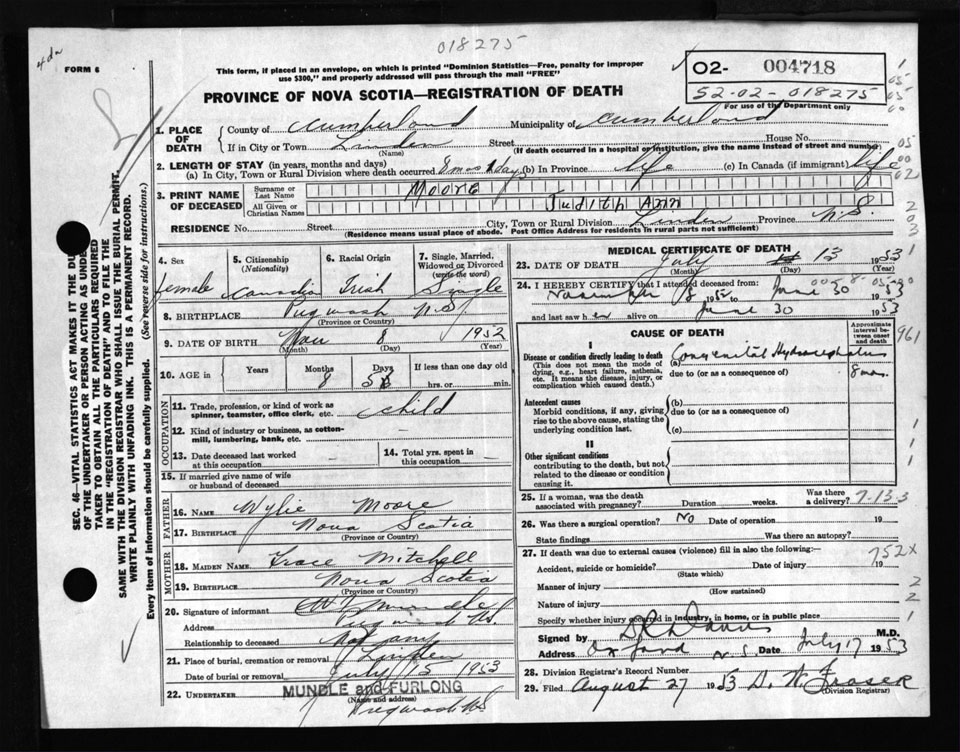 018275
4 da
FORM 6
This form, if placed in an envelope, on which is printed "Dominion Statistics—Free, penalty for improper
use $300," and properly addressed will pass through the mail "FREE"
PROVINCE OF NOVA SCOTIA—REGISTRATION OF DEATH
02- 004718
52-02-018275
For use of the Department only
1. PLACE OF DEATH
County of Cumberland Municipality of Cumberland
If in City or Town Linden Street House No.
(Name) (If death occurred in a hospital or institution, give the name instead of street and number)
2. LENGTH OF STAY (in years, months and days)
(a) In City, Town or Rural Division where death occurred 8 mos days (b) In Province life (c) In Canada (if immigrant) life
3. PRINT NAME OF DECEASED
Surname or Last Name MOORE
All Given or Christian Names Judith Ann
RESIDENCE No. Street City, Town or Rural Division Linden Province N.S.
(Residence means usual place of abode. Post Office Address for residents in rural parts not sufficient)
4. Sex female
5. Citizenship (Nationality) Canadian
6. Racial Origin Irish
7. Single, Married, Widowed or Divorced (write the word) Single
8. BIRTHPLACE Pugwash N.S.
(Province or Country)
9. DATE OF BIRTH Nov 8 1952
(Month) (Day) (Year)
10. AGE in Years Months 8 Days 5 If less than one day old
hrs. or min.
OCCUPATION
11. Trade, profession, or kind of work as spinner, teamster, office clerk, etc. child
12. Kind of industry or business, as cotton-mill, lumbering, bank, etc. —
13. Date deceased last worked at this occupation —
14. Total yrs. spent in this occupation —
15. If married give name of wife or husband of deceased
FATHER
16. NAME Wylie Moore
17. BIRTHPLACE Nova Scotia
(Province or Country)
MOTHER
18. MAIDEN NAME Grace Mitchell
19. BIRTHPLACE Nova Scotia
(Province or Country)
20. Signature of informant Mundle
Address Pugwash N.S.
Relationship to deceased Not any
21. Place of burial, cremation or removal Linden
Date of burial or removal July 15 1953
22. UNDERTAKER MUNDLE and FURLONG
(Name and address)
Pugwash N.S.
MEDICAL CERTIFICATE OF DEATH
23. DATE OF DEATH July 13 1953
(Month) (Day) (Year)
24. I HEREBY CERTIFY that I attended deceased from:
November 8 1952 to June 30 1953
and last saw her alive on June 30 1953
CAUSE OF DEATH
Approximate interval between onset and death
961
I
Disease or condition directly leading to death
(This does not mean the mode of dying, e.g., heart failure, asthenia, etc. It means the disease, injury, or complication which caused death.)
(a) Congenital Hydrocephalus 8 mos.
due to (or as a consequence of)
Antecedent causes
Morbid conditions, if any, giving rise to the above cause, stating the underlying condition last.
(b)
due to (or as a consequence of)
(c)
II
Other significant conditions
contributing to the death, but not related to the disease or condition causing it.
25. If a woman, was the death associated with pregnancy? Duration weeks. Was there a delivery? 7-13-3
26. Was there a surgical operation? No Date of operation 19
State findings Was there an autopsy?
27. If death was due to external causes (violence) fill in also the following:— 752X
Accident, suicide or homicide? Date of injury 19
(State which)
Manner of injury
(How sustained)
Nature of injury
Specify whether injury occurred in industry, in home, or in public place
Signed by M.D.
Address Oxford N.S. Date July 17 1953
28. Division Registrar's Record Number
29. Filed August 27 1953 D. W. Fraser
(Division Registrar)
SEC. 46—VITAL STATISTICS ACT MAKES IT THE DUTY
OF THE UNDERTAKER OR PERSON ACTING AS UNDERTAKER
TO OBTAIN ALL THE PARTICULARS REQUIRED
IN THE "REGISTRATION OF DEATH" AND TO FILE THE
SAME WITH THE DIVISION REGISTRAR WHO SHALL ISSUE THE BURIAL PERMIT.
WRITE PLAINLY WITH UNFADING INK. THIS IS A PERMANENT RECORD.
Every item of information should be carefully supplied. (See reverse side for instructions.)